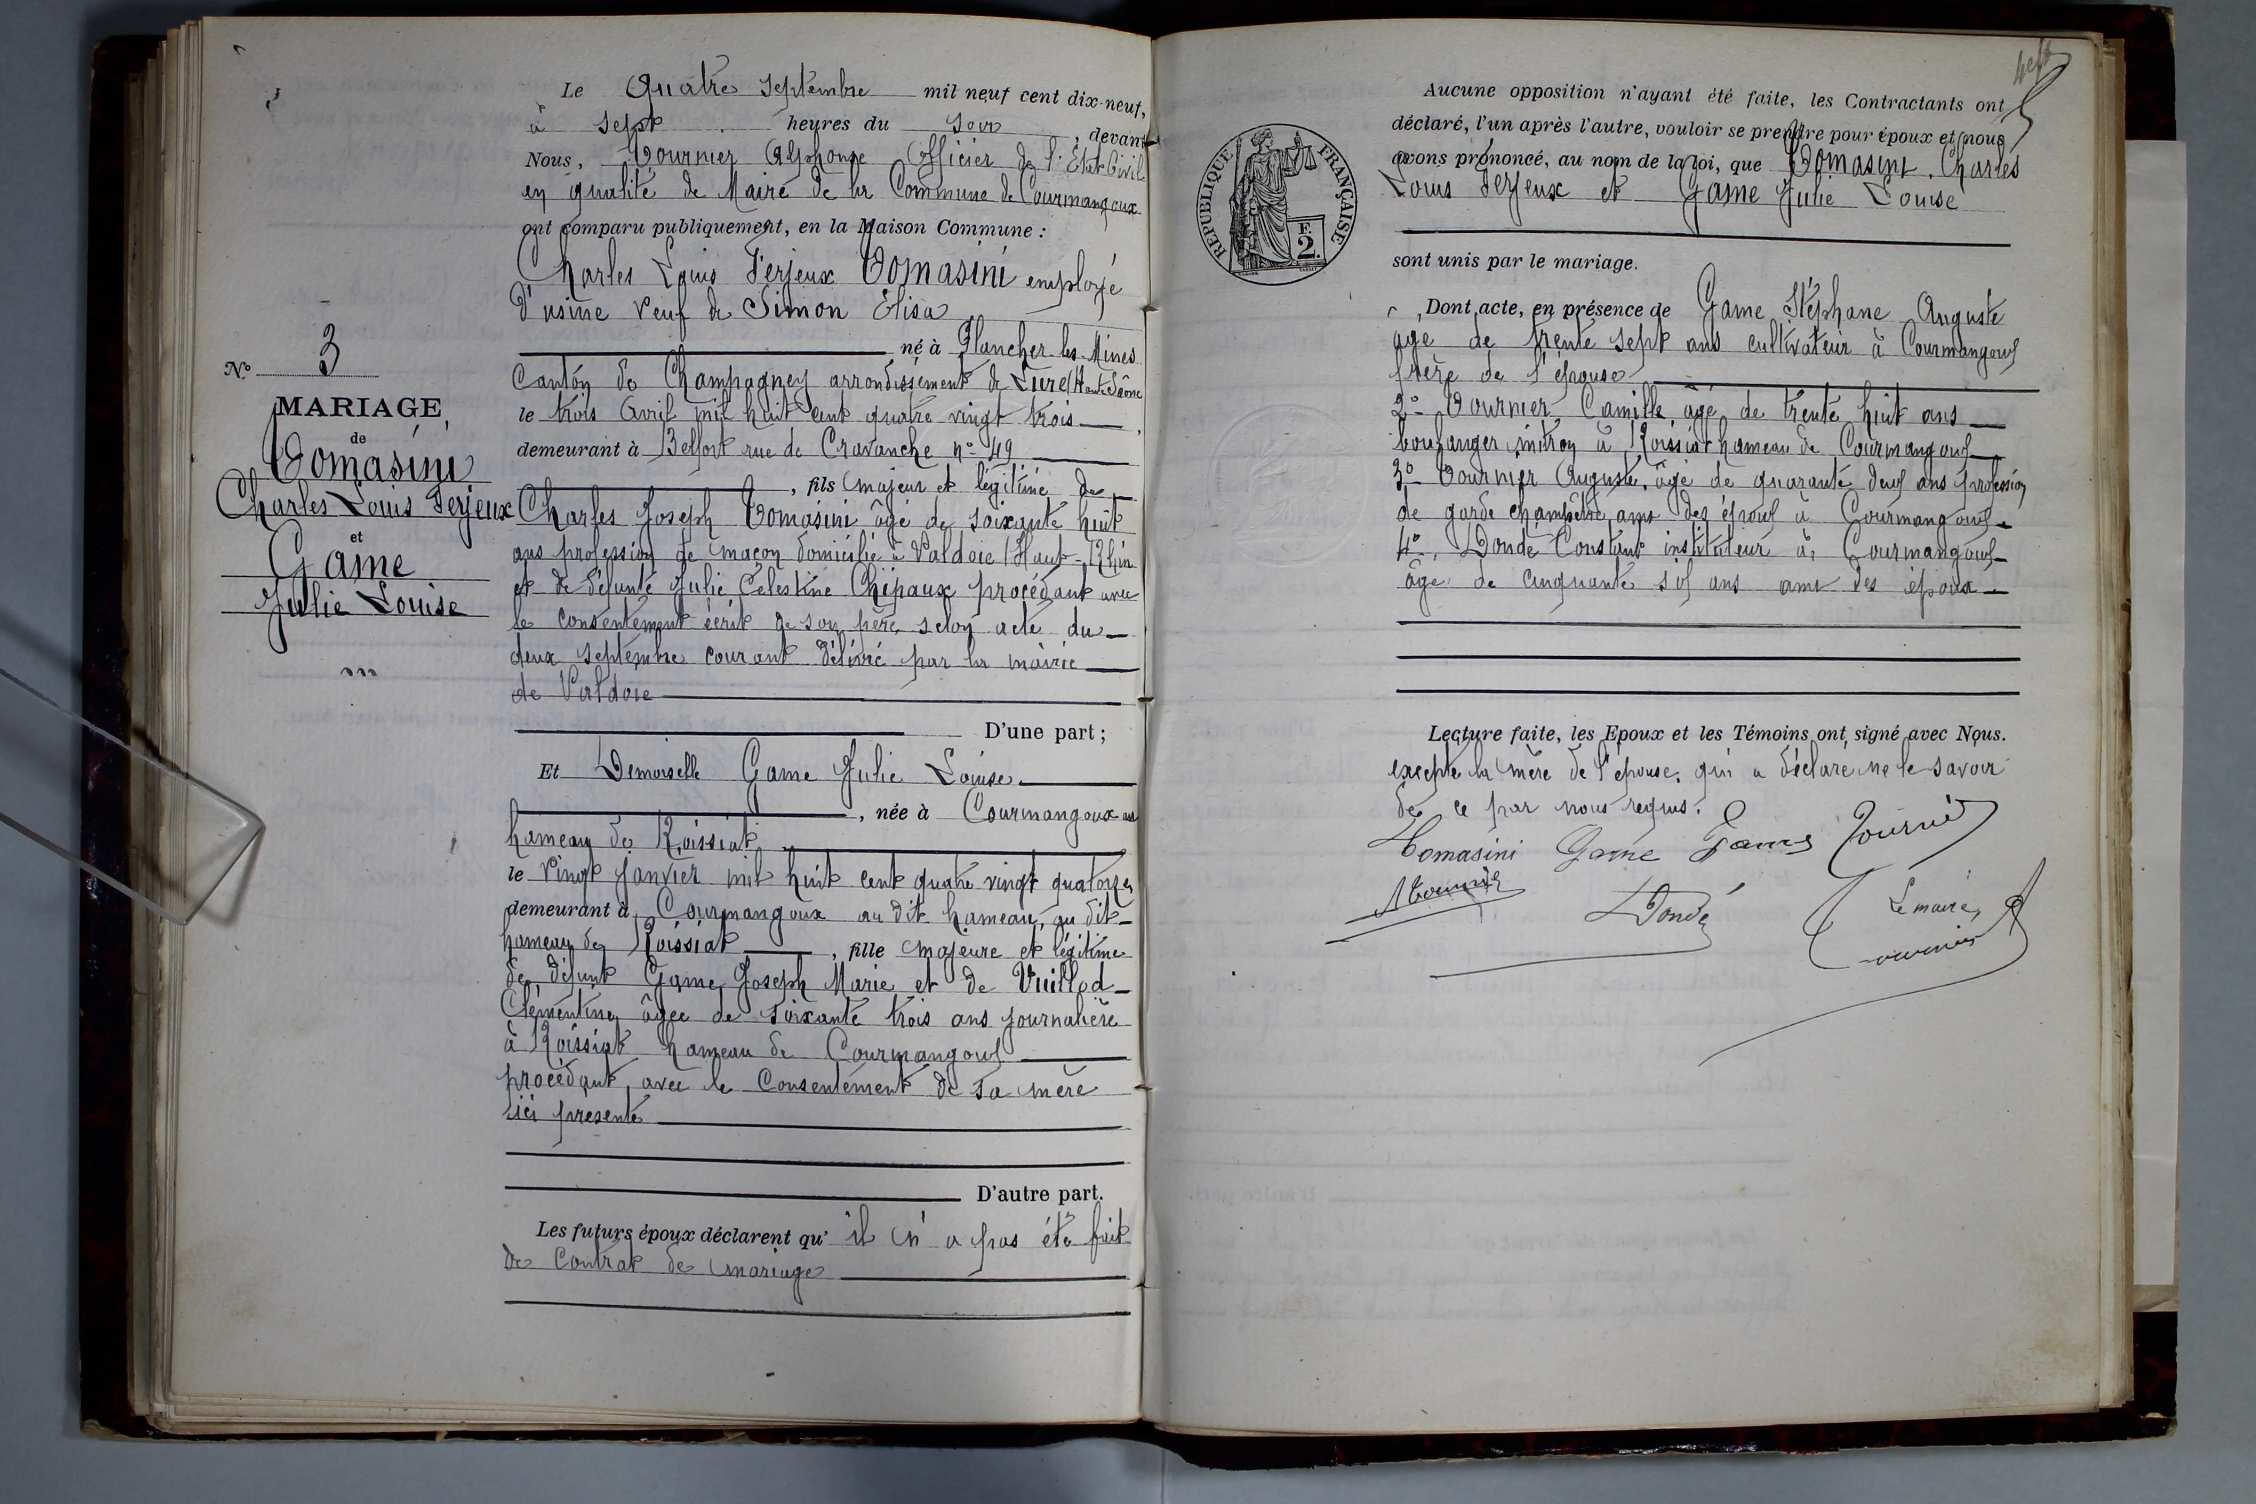 Le Quatre Septembre mil neuf cent dix-neuf,
à sept heures du soir, devant
Nous, Tournier Alphonse Officier de l'Etat Civil
en qualité de Maire de la Commune de Courmangoux
ont comparu publiquement, en la Maison Commune :
Charles Louis Ferjeux Tomasini employé
d'usine veuf de Simon Elisa
né à Plancher les Mines
Canton de Champagney arrondissement de Lure (Haute Saône
le trois Avril mil huit cent quatre vingt trois
demeurant à Belfort rue de Cravanche n° 49
, fils majeur et légitime de
Charles Joseph Tomasini âgé de soixante huit
ans profession de maçon domicilié à Valdoie (Haut-Rhin
et de défunte Julie Célestine Chipaux procédant avec
le consentement écrit de son père, selon acte du
deux septembre courant délivré par la mairie
de Valdoie
D'une part ;
Et Demoiselle Game Julie Louise
, née à Courmangoux au
hameau de Roissiat
le vingt Janvier mil huit cent quatre vingt quatorze
demeurant à Courmangoux au dit hameau, au dit
hameau de Roissiat, fille majeure et légitime
de défunt Game Joseph Marie et de Vuillod
Clémentine âgée de soixante trois ans journalière
à Roissiat hameau de Courmangoux
procédant avec le Consentement de sa mère
ici présente
D'autre part.
Les futurs époux déclarent qu'il n'a pas été fait
de Contrat de mariage
N° 3
MARIAGE
de
Tomasini
Charles Louis Ferjeux
et
Game
Julie Louise
sept
Aucune opposition n'ayant été faite, les Contractants ont
déclaré, l'un après l'autre, vouloir se prendre pour époux et nous
avons prononcé, au nom de la loi, que Tomasini Charles
Louis Ferjeux et Game Julie Louise
sont unis par le mariage.
REPUBLIQUE FRANÇAISE
F.
2.
Dont acte, en présence de Game Stéphane Auguste
âgé de trente sept ans cultivateur à Courmangoux
frère de l'épouse
2° Tournier Camille âgé de trente huit ans
boulanger mitron à Roissiat hameau de Courmangoux
3° Tournier Auguste, âgé de quarante deux ans profession
de garde champêtre ami des époux à Courmangoux
4° Dondé Constant instituteur à Courmangoux
âgé de cinquante six ans ami des époux
Lecture faite, les Epoux et les Témoins ont signé avec Nous.
excepté la mère de l'épouse qui a déclaré ne le savoir
de ce par nous requis.
Tomasini Game Game Tournier
A Tournier
Dondé
Le maire,
Tournier